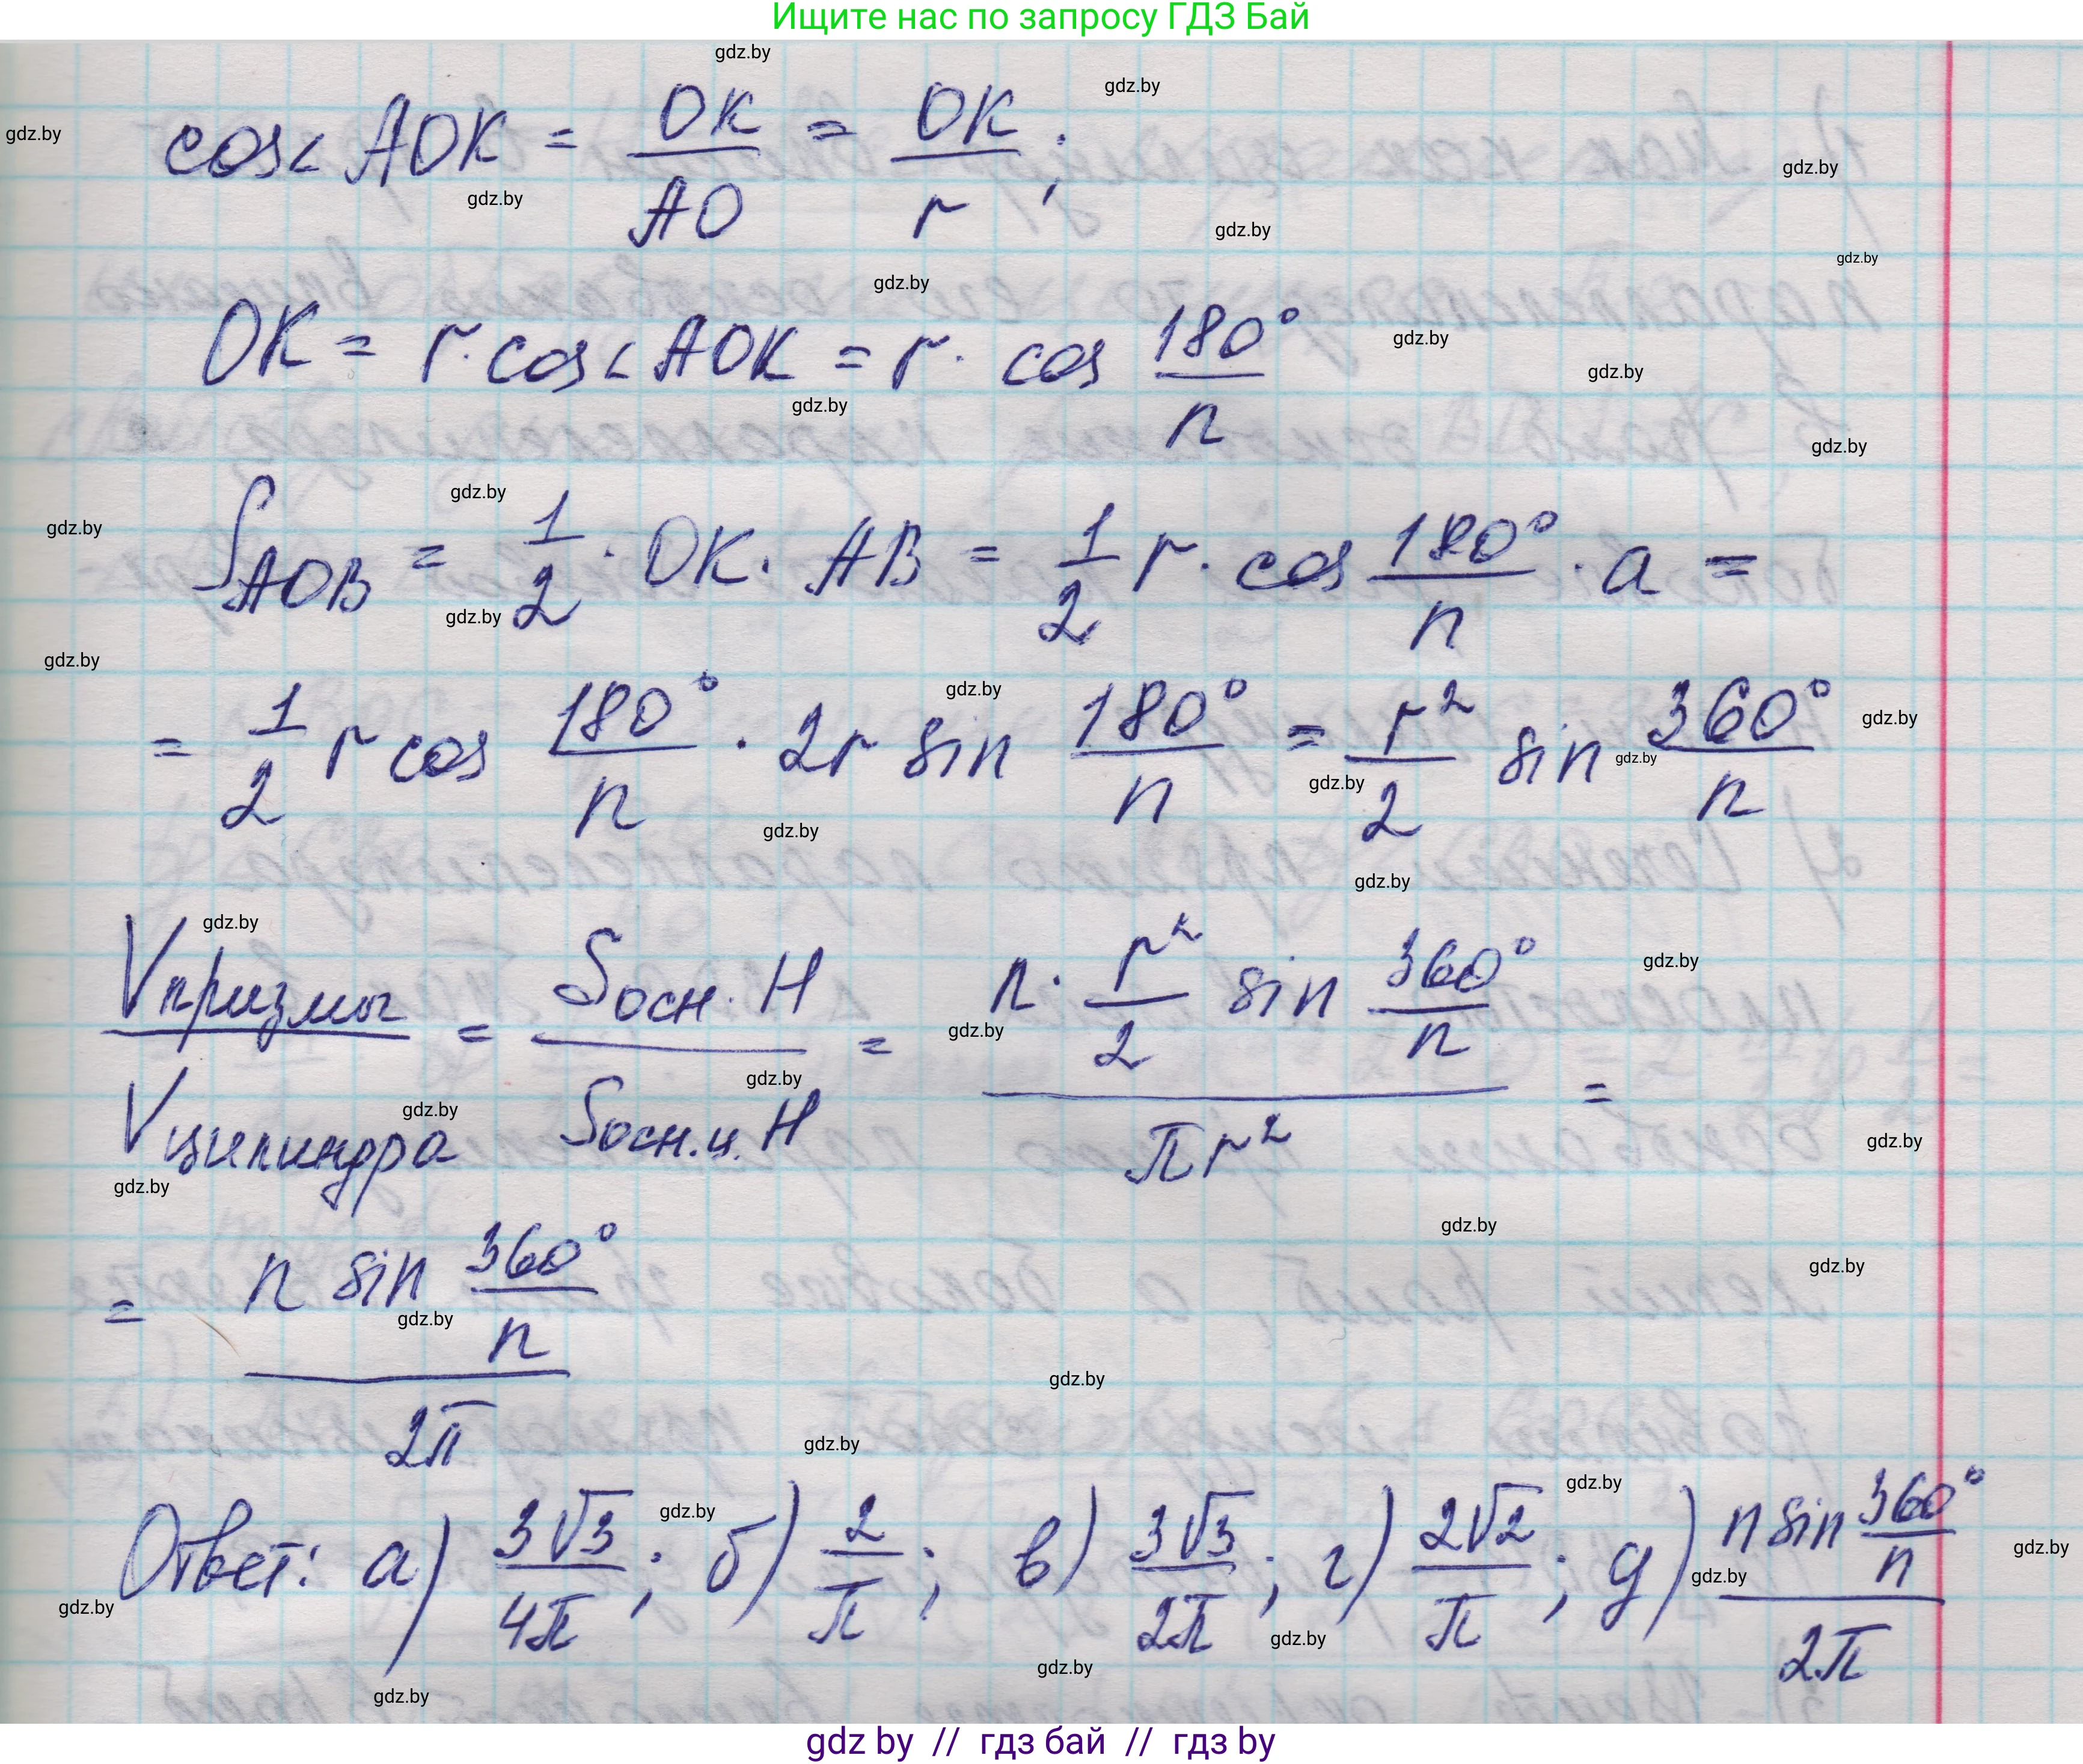 Ищите нас по запросу ГДЗ Бай
cos∠AOK = OK/AO = OK/r ;
OK = r · cos∠AOK = r · cos 180°/n
S AOB = 1/2 · OK · AB = 1/2 r · cos 180°/n · a =
= 1/2 r cos 180°/n · 2r sin 180°/n = r²/2 sin 360°/n
Vпризмы/Vцилиндра = Sосн. H/Sосн.ц. H = (n · r²/2 sin 360°/n)/(πr²) =
= (n sin 360°/n)/(2π)
Ответ: а) 3√3/4π ; б) 2/π ; в) 3√3/2π ; г) 2√2/π ; д) (n sin 360°/n)/(2π)
gdz by // гдз бай // гдз by